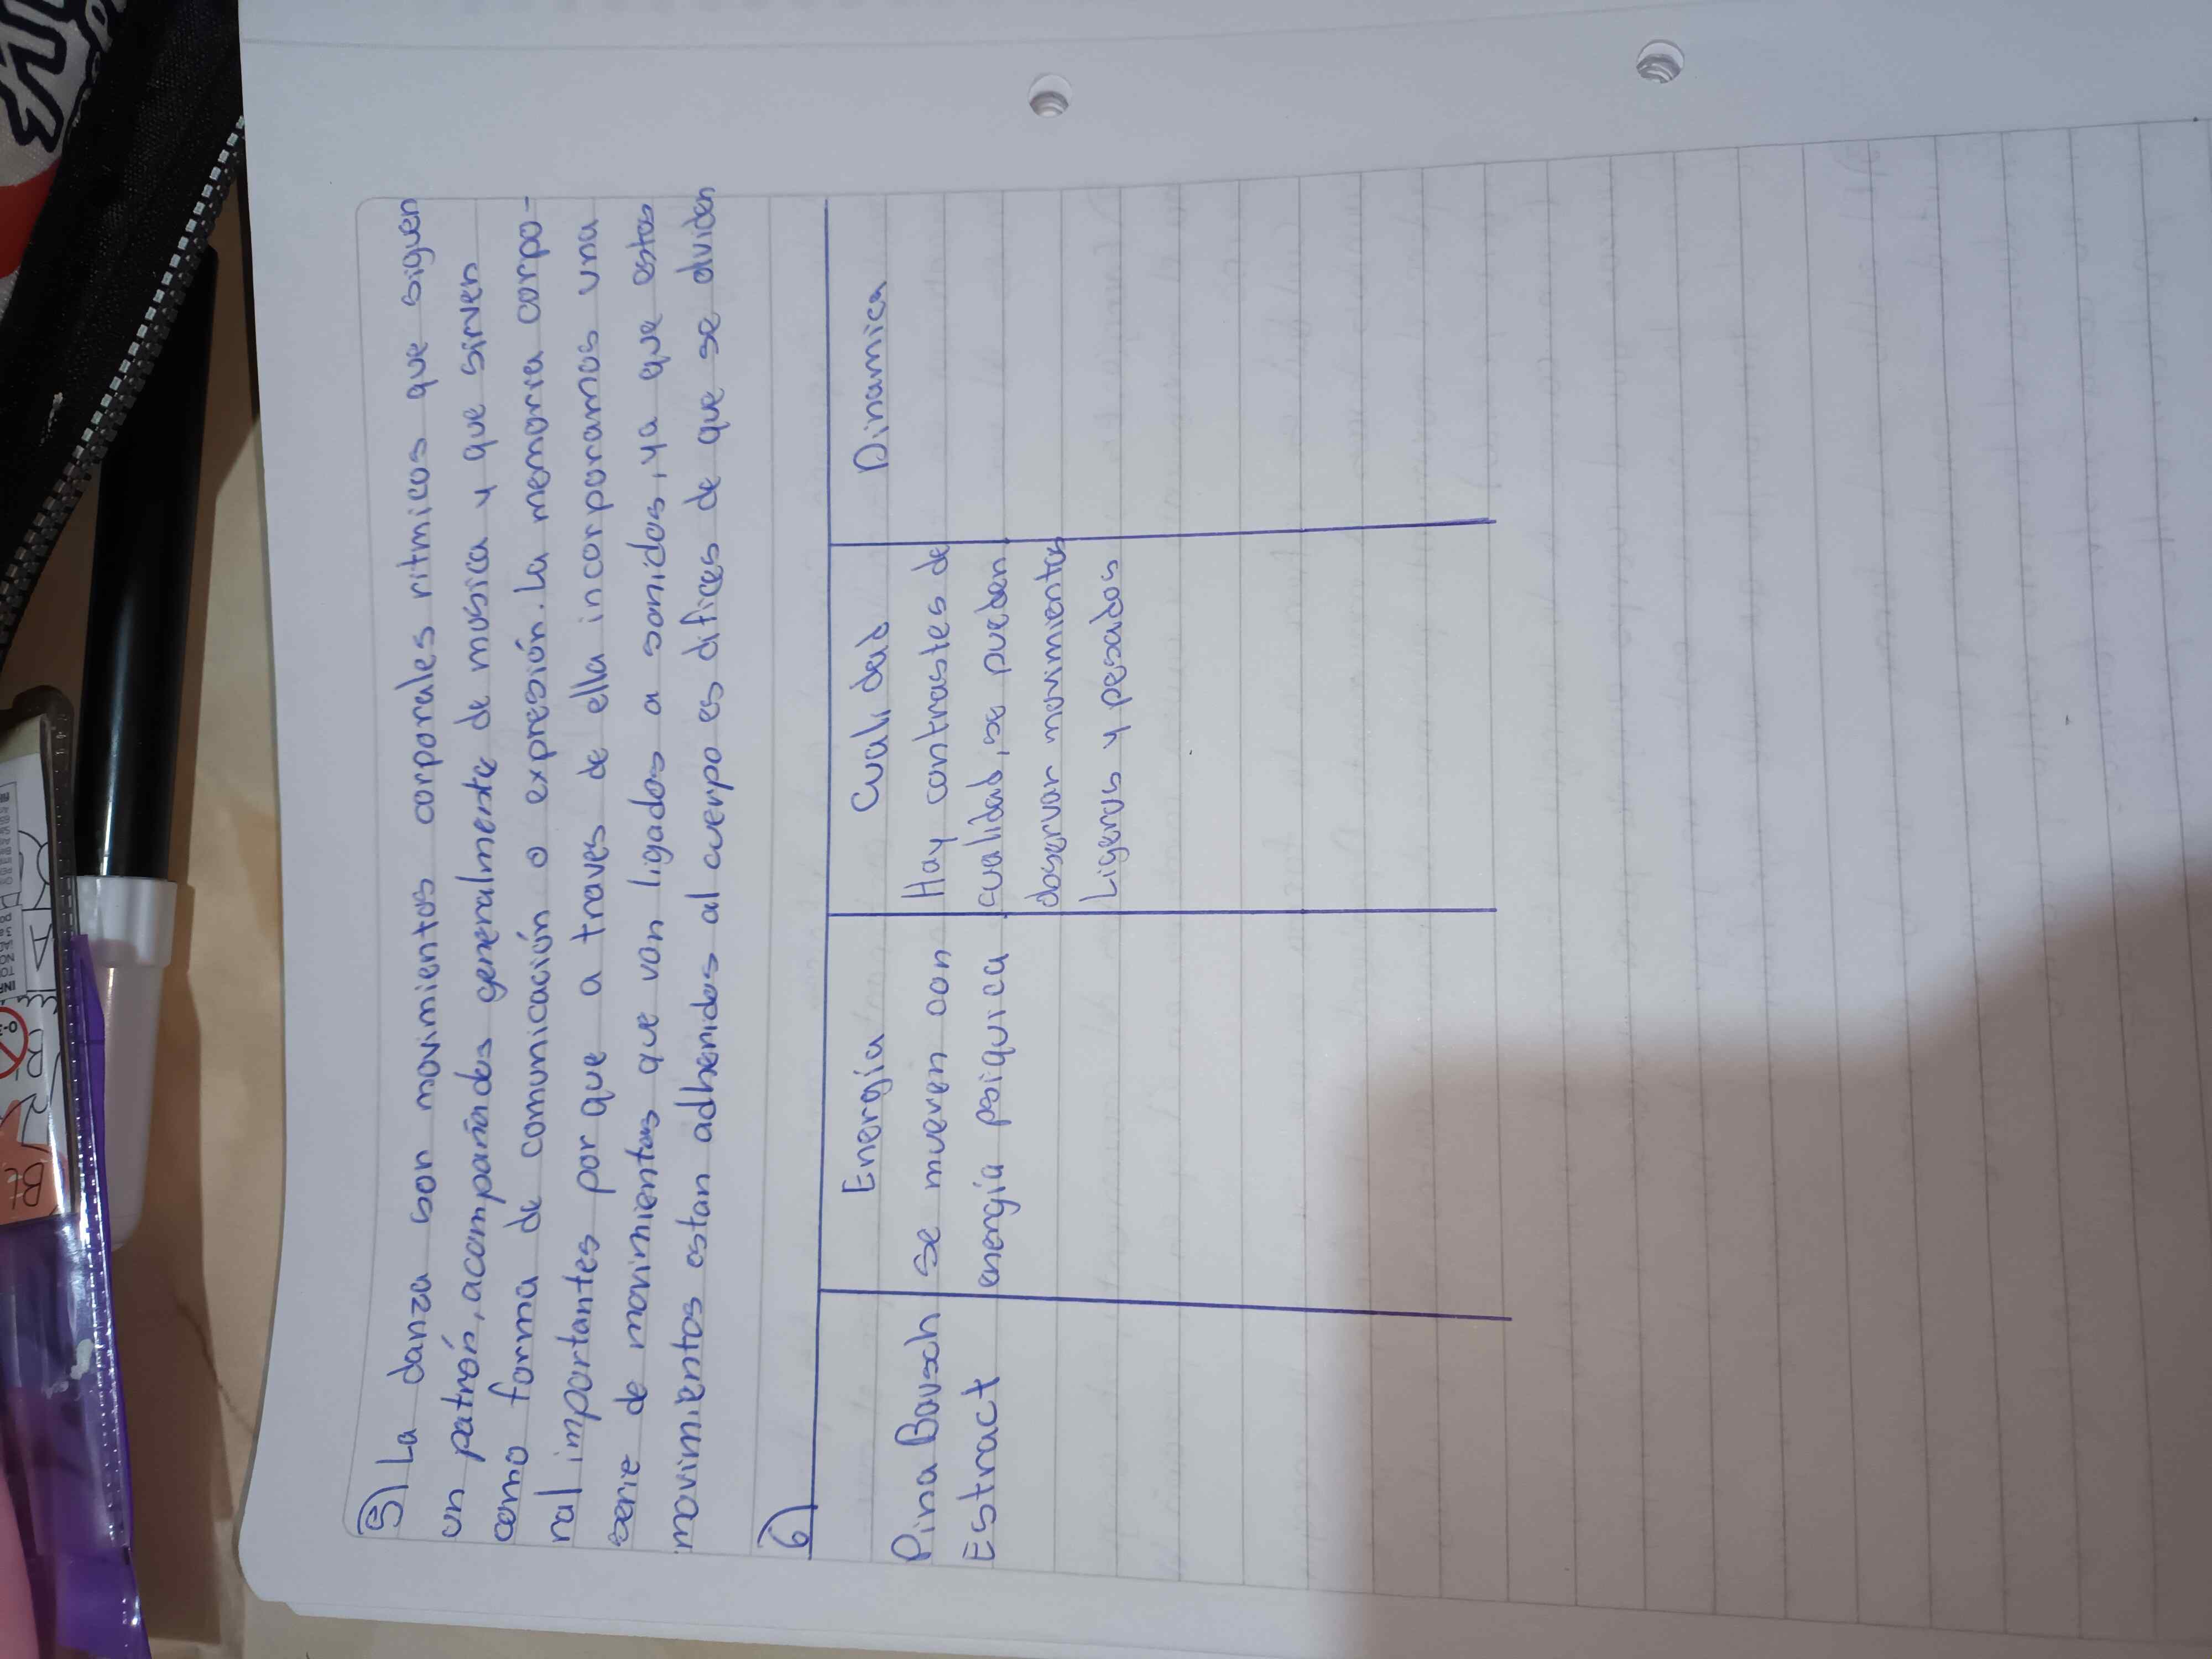 5) La danza son movimientos corporales ritmicos que siguen
un patrón, acompañados generalmente de música y que sirven
como forma de comunicación o expresión. La memoria corpo-
ral importantes por que a traves de ella incorporamos una
serie de movimientos que van ligados a sonidos, ya que estos
movimientos estan adheridos al cuerpo es difices de que se olviden
6)
Energía Cualidad Dinamica
Pina Bausch se mueven con Hay contrastes de
Estract energía psiquica cualidad, se pueden
observar movimientos
Ligeros y pesados